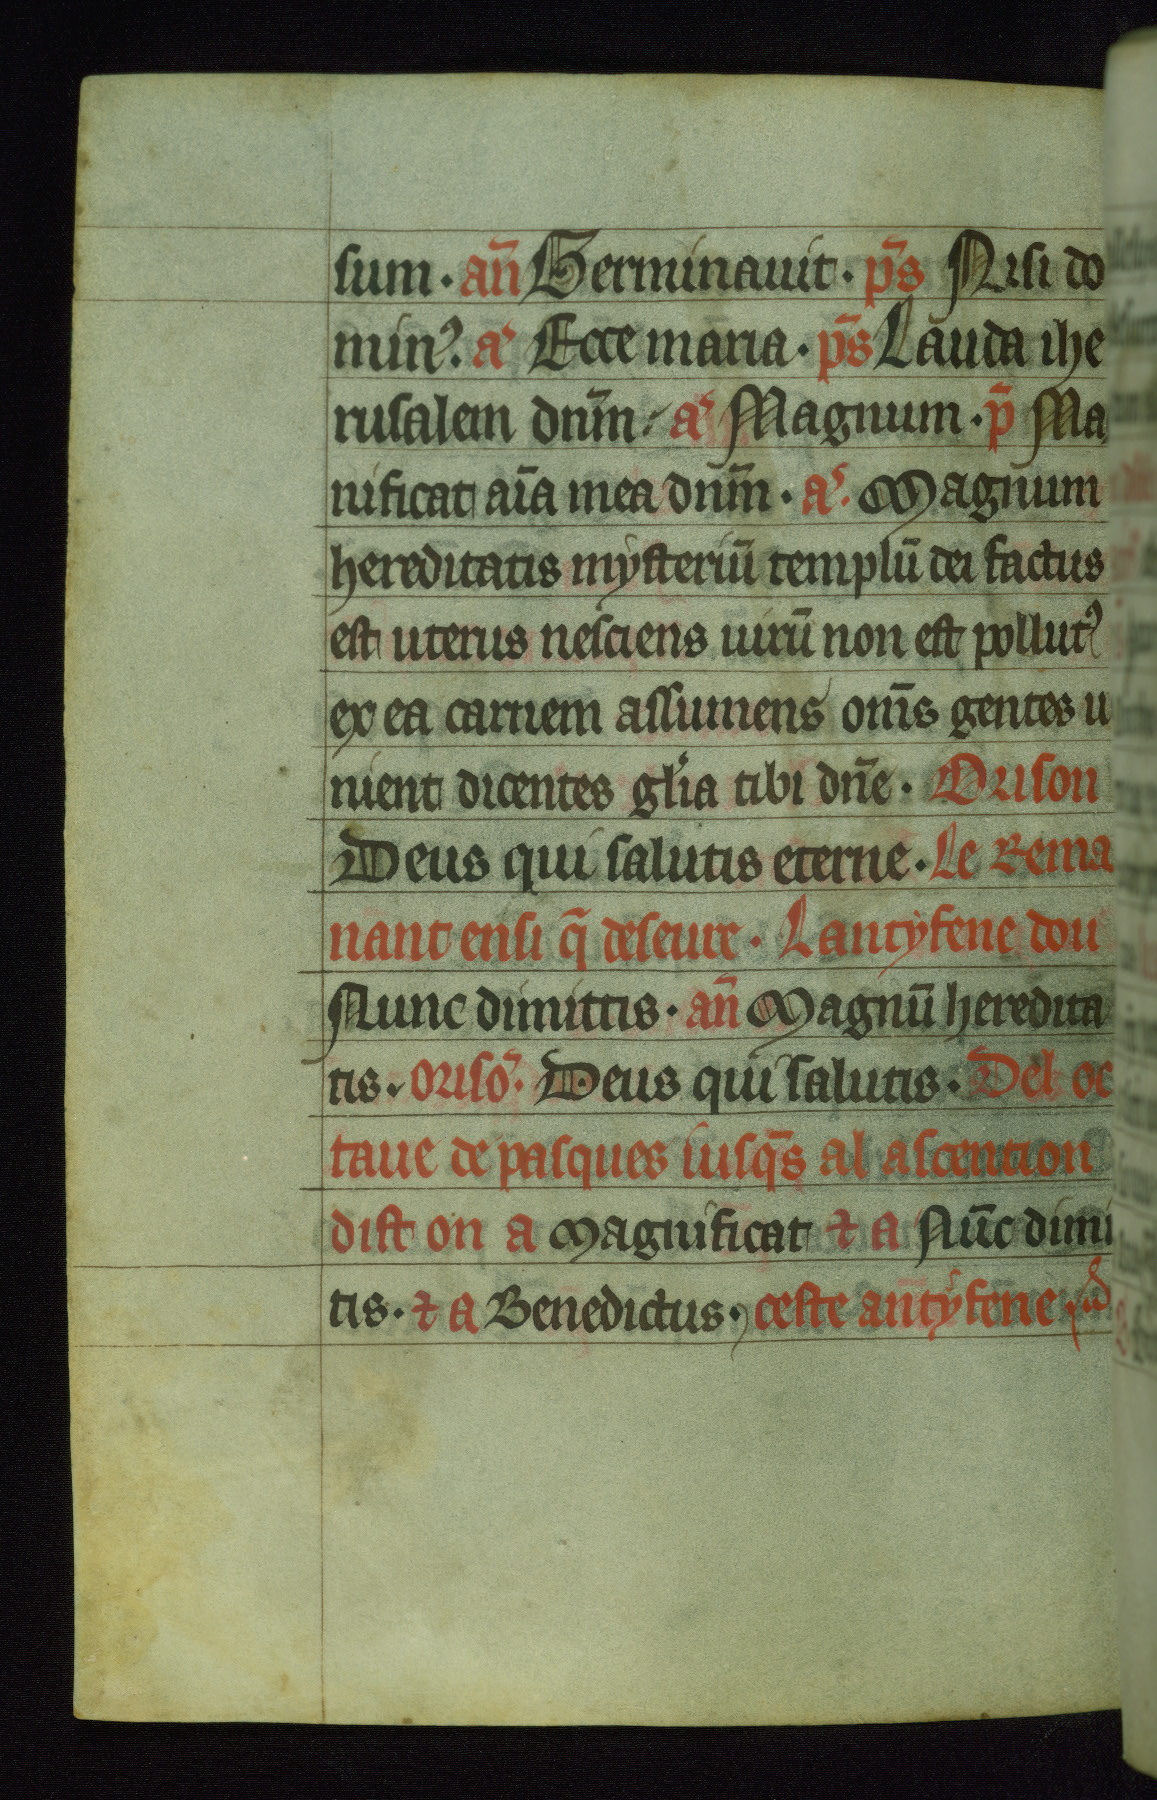 sum · añ Germinauit · p̄s Nisi do
minꝰ. aˢ Ecce maria · p̄s Lauda ihe
rusalem dnm̄ · aˢ Magnum · p̄ Ma
nificat aīa mea dnm̄ · aˢ. Magnum
hereditatis mysteriū templū dei factus
est uterus nesciens uirū non est pollutꝰ
ex ea carnem assumens om̄s gentes u
nient dicentes gl̄ia tibi dn̄e · Orison
Deus qui salutis eterne · Le Rema
nant ensi q̄ deseure · Lantyfene dou
Nunc dimittis · añ Magnū heredita
tis · orisō · Deus qui salutis · Del oc
taue de pasques iusq̄s al ascention
dist on a magnificat ⁊ a Nūc dimi
tis · ⁊ a Benedictus · ceste antyfene